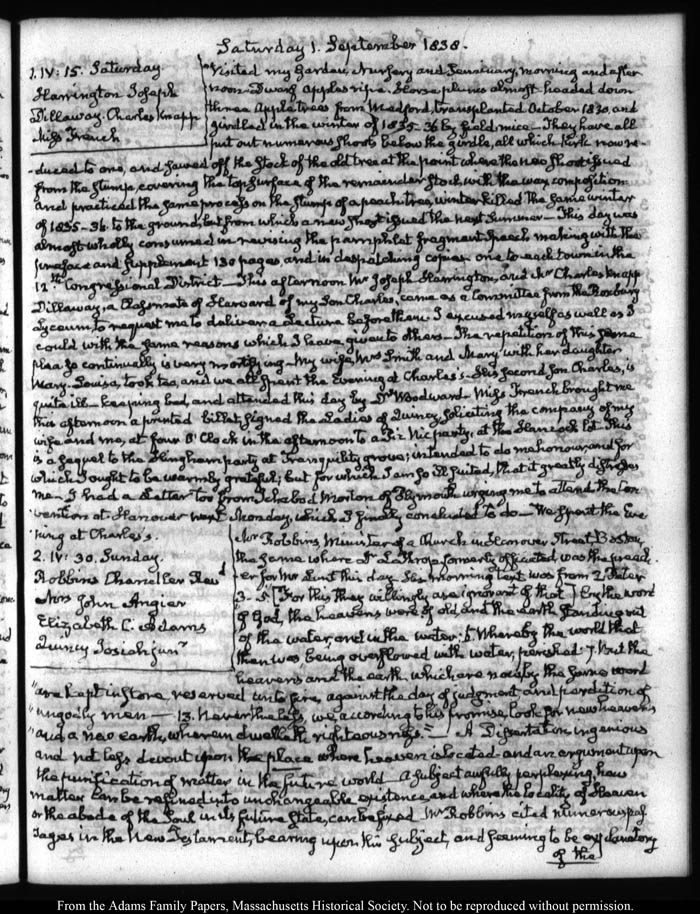 Saturday 1. September 1838.
1. IV: 15. Saturday.
Harrington Joseph
Dillaway. Charles Knapp
Miss French
Visited my Garden, Nursery and Seminary, morning and after
noon. Dwarf apples ripe. Horse plums almost headed down
three Apple trees from Medford, transplanted October 1830, and
girdled in the winter of 1835-36 by field mice — They have all
put out numerous shoots below the girdle, all which Kirk now re-
-duced to one, and sawed off the stock of the old tree at the point where the new shoot issued
from the stump, covering the top surface of the remainder stock with the wax composition
and practiced the same process on the stump of a peach tree, winter killed the same winter
of 1835-36. to the ground, but from which a new shoot issued the next Summer — This day was
almost wholly consumed in revising the pamphlet fragment speech making with the
preface and supplement 130 pages, and in despatching copies one to each town in the
12th Congressional District — This afternoon Mr Joseph Harrington, and Mr Charles Knapp
Dillaway, a Classmate at Harvard of my Son Charles, came as a Committee from the Roxbury
Lyceum to request me to deliver a Lecture before them. I excused myself as well as I
could with the same reasons which I have given to others — The repetition of this same
plea so continually is very mortifying. My wife, Mrs Smith and Mary with her daughter
Mary Louisa, took tea, and we all spent the Evening at Charles's. His second son Charles, is
quite ill keeping bed, and attended this day by Dr Woodward. Miss French brought me
this afternoon a printed billet signed the Ladies of Quincy, soliciting the company of my
wife and me, at four O'Clock in the afternoon to a Pic Nic party, at the Hancock lot. This
is a sequel to the Hingham party at Tranquility grove; intended to do me honour and for
which I ought to be warmly grateful; but for which I am so ill suited, that it greatly distresses
me. I had a Letter too from Ichabod Morton of Plymouth urging me to attend the Con-
vention at Hanover next Monday, which I finally concluded to do — We spent the Eve
ning at Charles's.
2. IV: 30. Sunday.
Robbins Chandler Revd
Mrs John Angier
Elizabeth C. Adams
Quincy Josiah junr
Mr Robbins, Minister of a Church in Hanover Street Boston,
the same where Dr Lathrop formerly officiated, was the preach-
-er for Mr Lunt this day. His morning text was from 2 Peter
3. 5. [For this they willingly are ignorant of that] by the word
of God, the heavens were of old, and the earth standing out
of the water, and in the water: 6. Whereby the world that
then was, being overflowed with water, perished. 7. But the
heavens and the earth, which are now, by the same word
"are kept in store reserved unto fire, against the day of judgment and perdition of
"ungodly men — 13. Nevertheless, we, according to his promise, look for new heavens
"and a new earth, wherein dwelleth righteousness." — A Dissertation ingenious
and not less devout upon the place where heaven is located and an argument upon
the purification of matter in the future world. A subject awfully perplexing, how
matter can be refined into unchangeable existence, and where the locality of Heaven
or the abode of the Soul in its future State, can be fixed. Mr Robbins cited numerous pas-
sages in the New Testament, bearing upon this subject, and seeming to be explanatory
of the
From the Adams Family Papers, Massachusetts Historical Society. Not to be reproduced without permission.